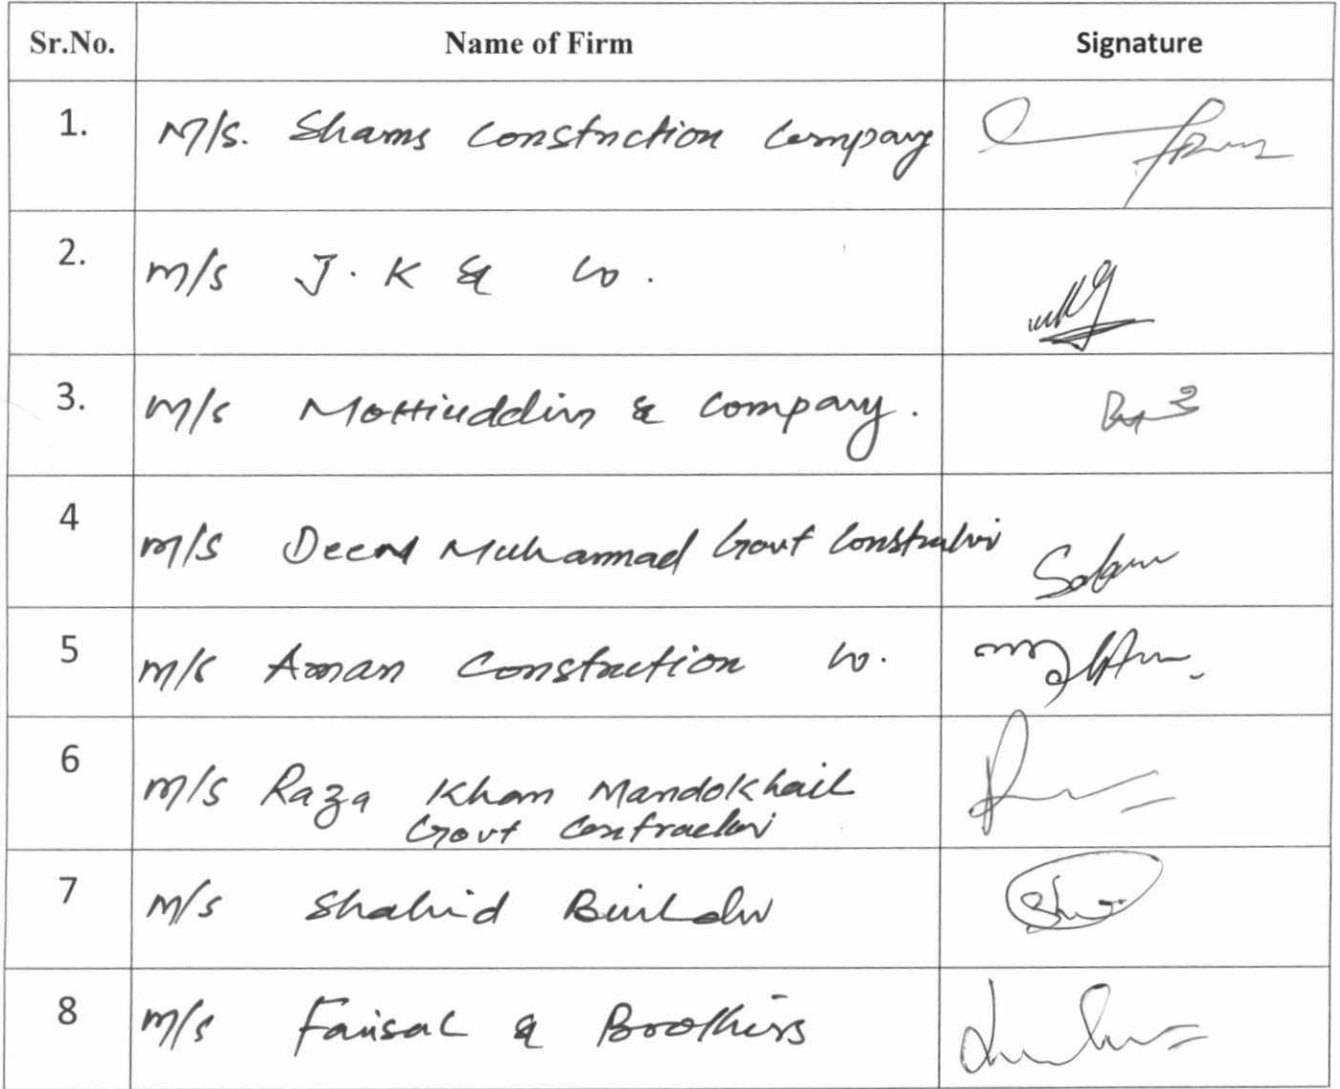 Sr.No. Name of Firm Signature
1. M/s. Shams Construction Company
2. M/s J.K & Co.
3. M/s Mohiuddin & Company.
4 M/s Deen Muhammad Govt
5 M/s Aman Construction Co.
6 M/s Raza Khan Mandokhail
Govt Contractor
7 M/s Shahid Builder
8 M/s Faisal & Brothers